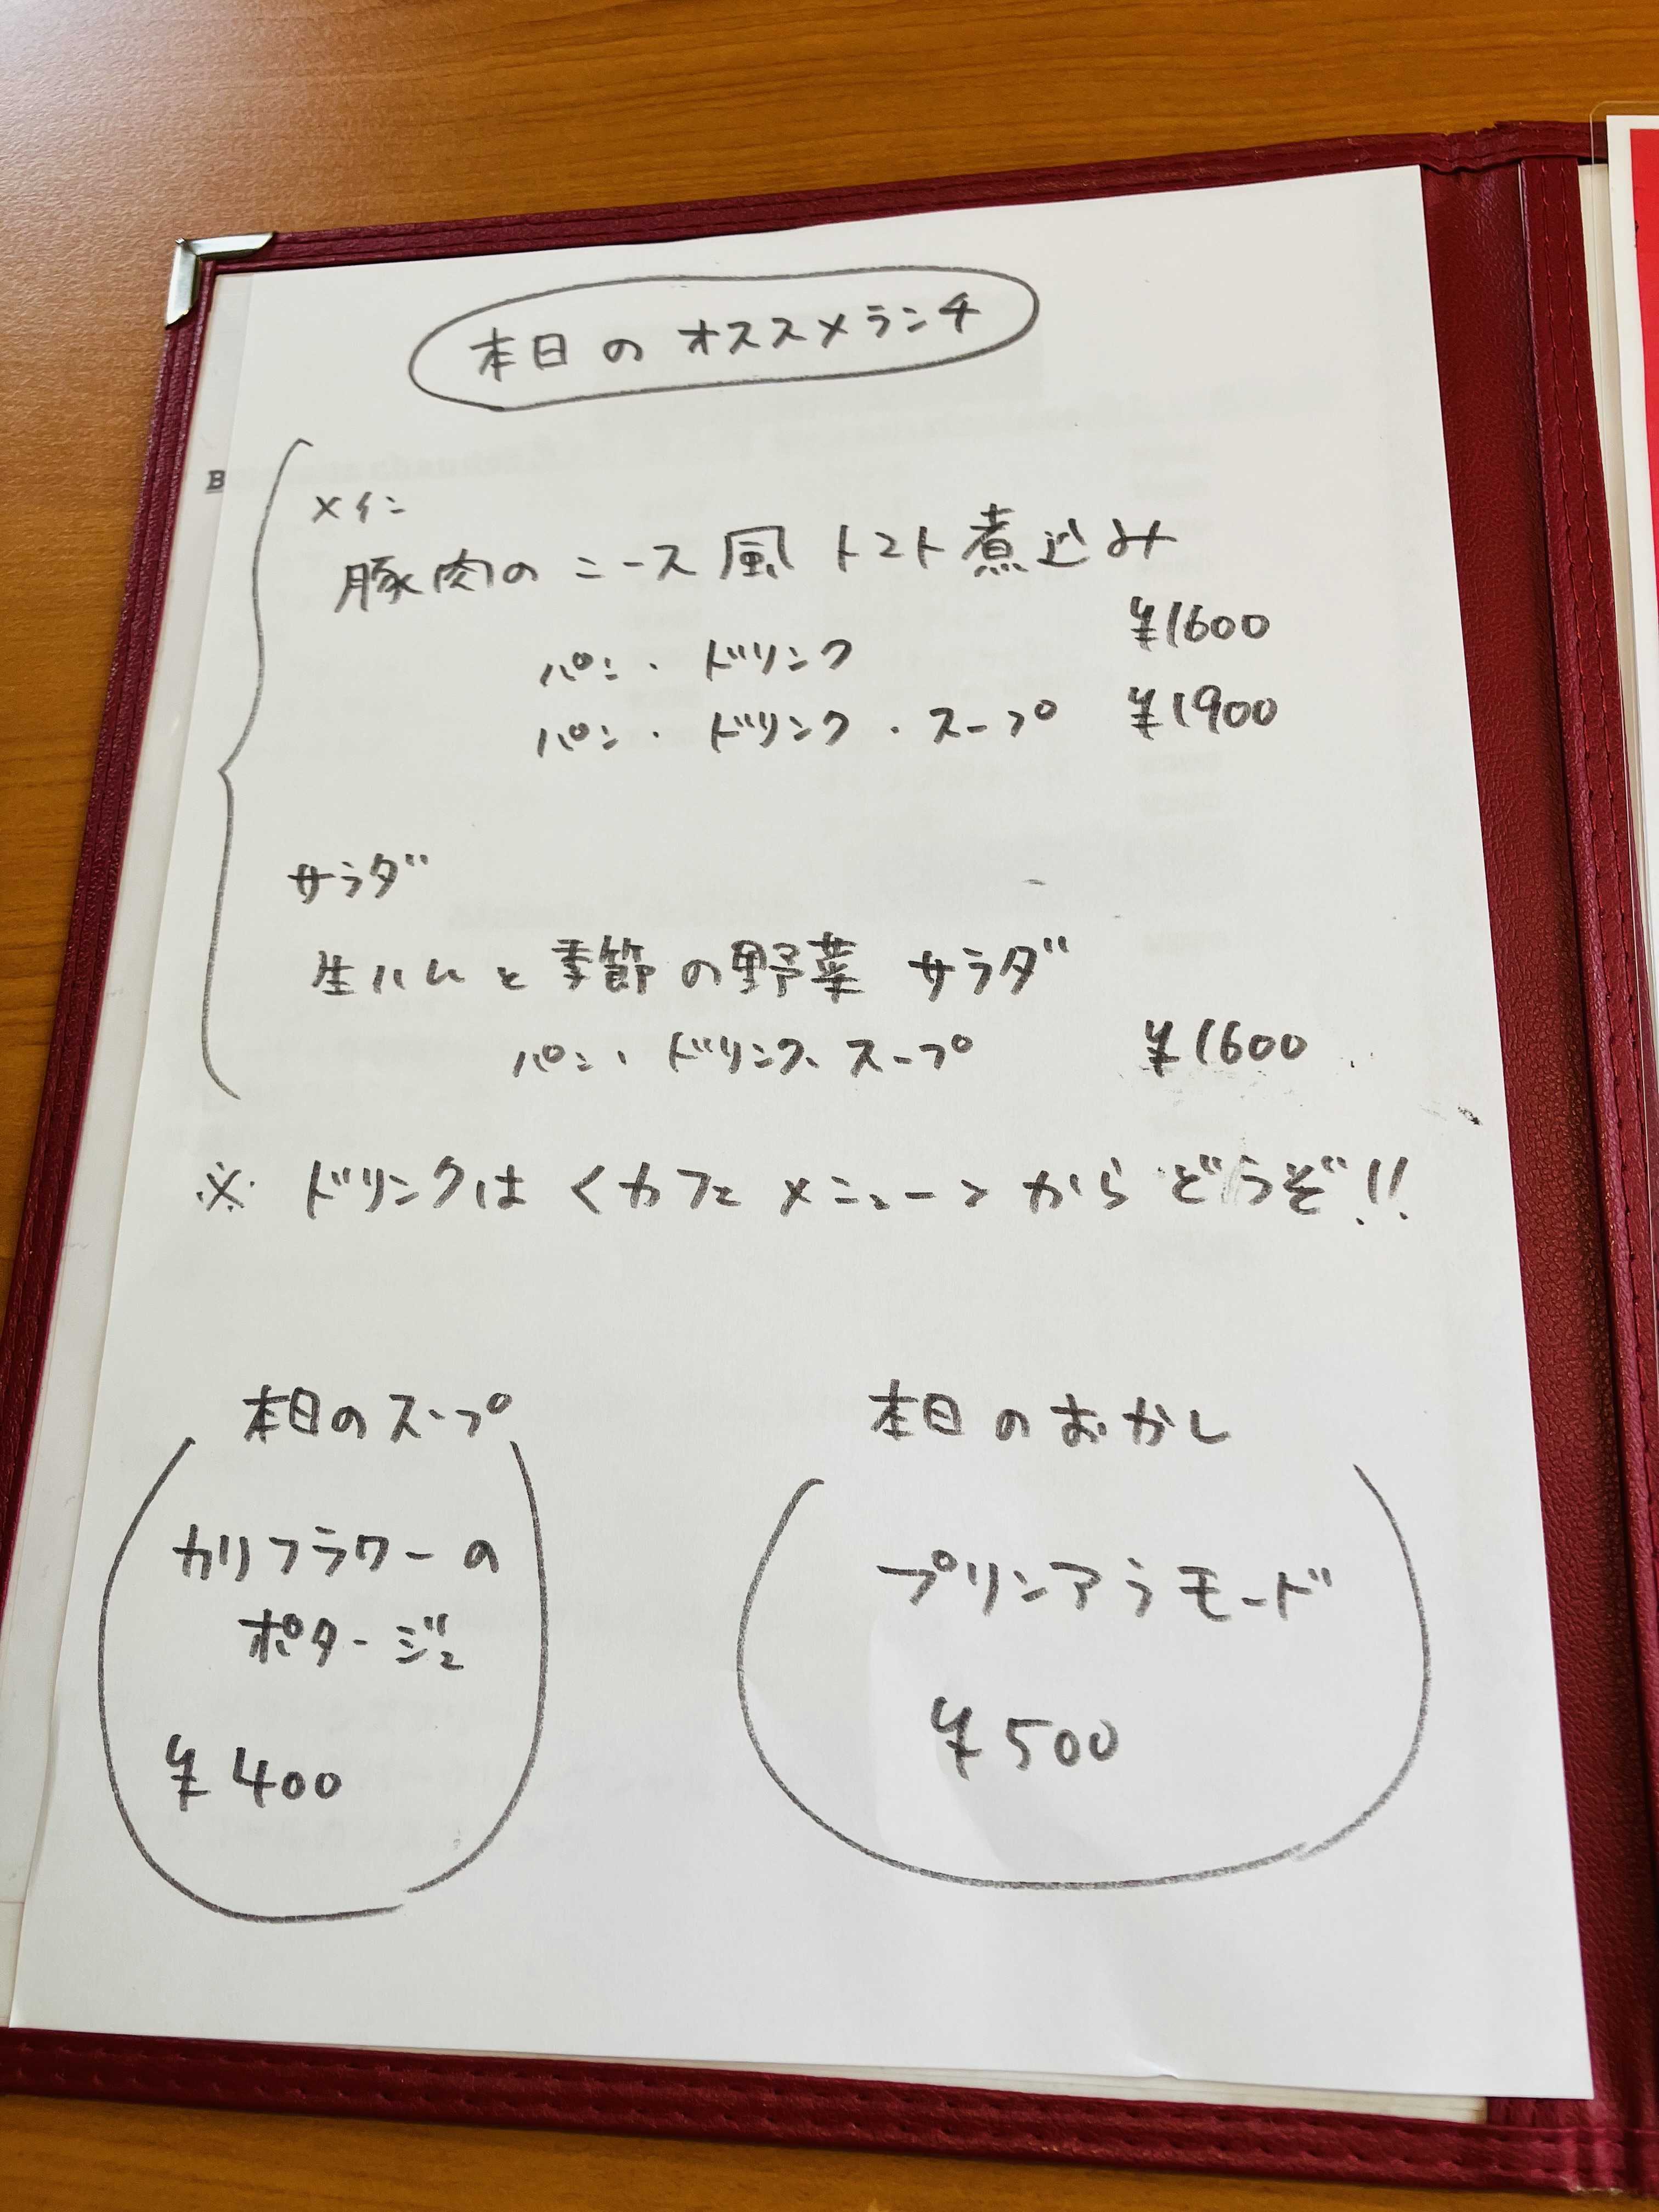 本日のオススメランチ
B
メイン
豚肉のニース風トマト煮込み
パン・ドリンク ¥1600
パン・ドリンク・スープ ¥1900
サラダ
生ハムと季節の野菜サラダ
パン・ドリンク・スープ ¥1600
※ ドリンクは<カフェメニュー>からどうぞ!!
本日のスープ
カリフラワーの
ポタージュ
¥400
本日のおかし
プリンアラモード
¥500